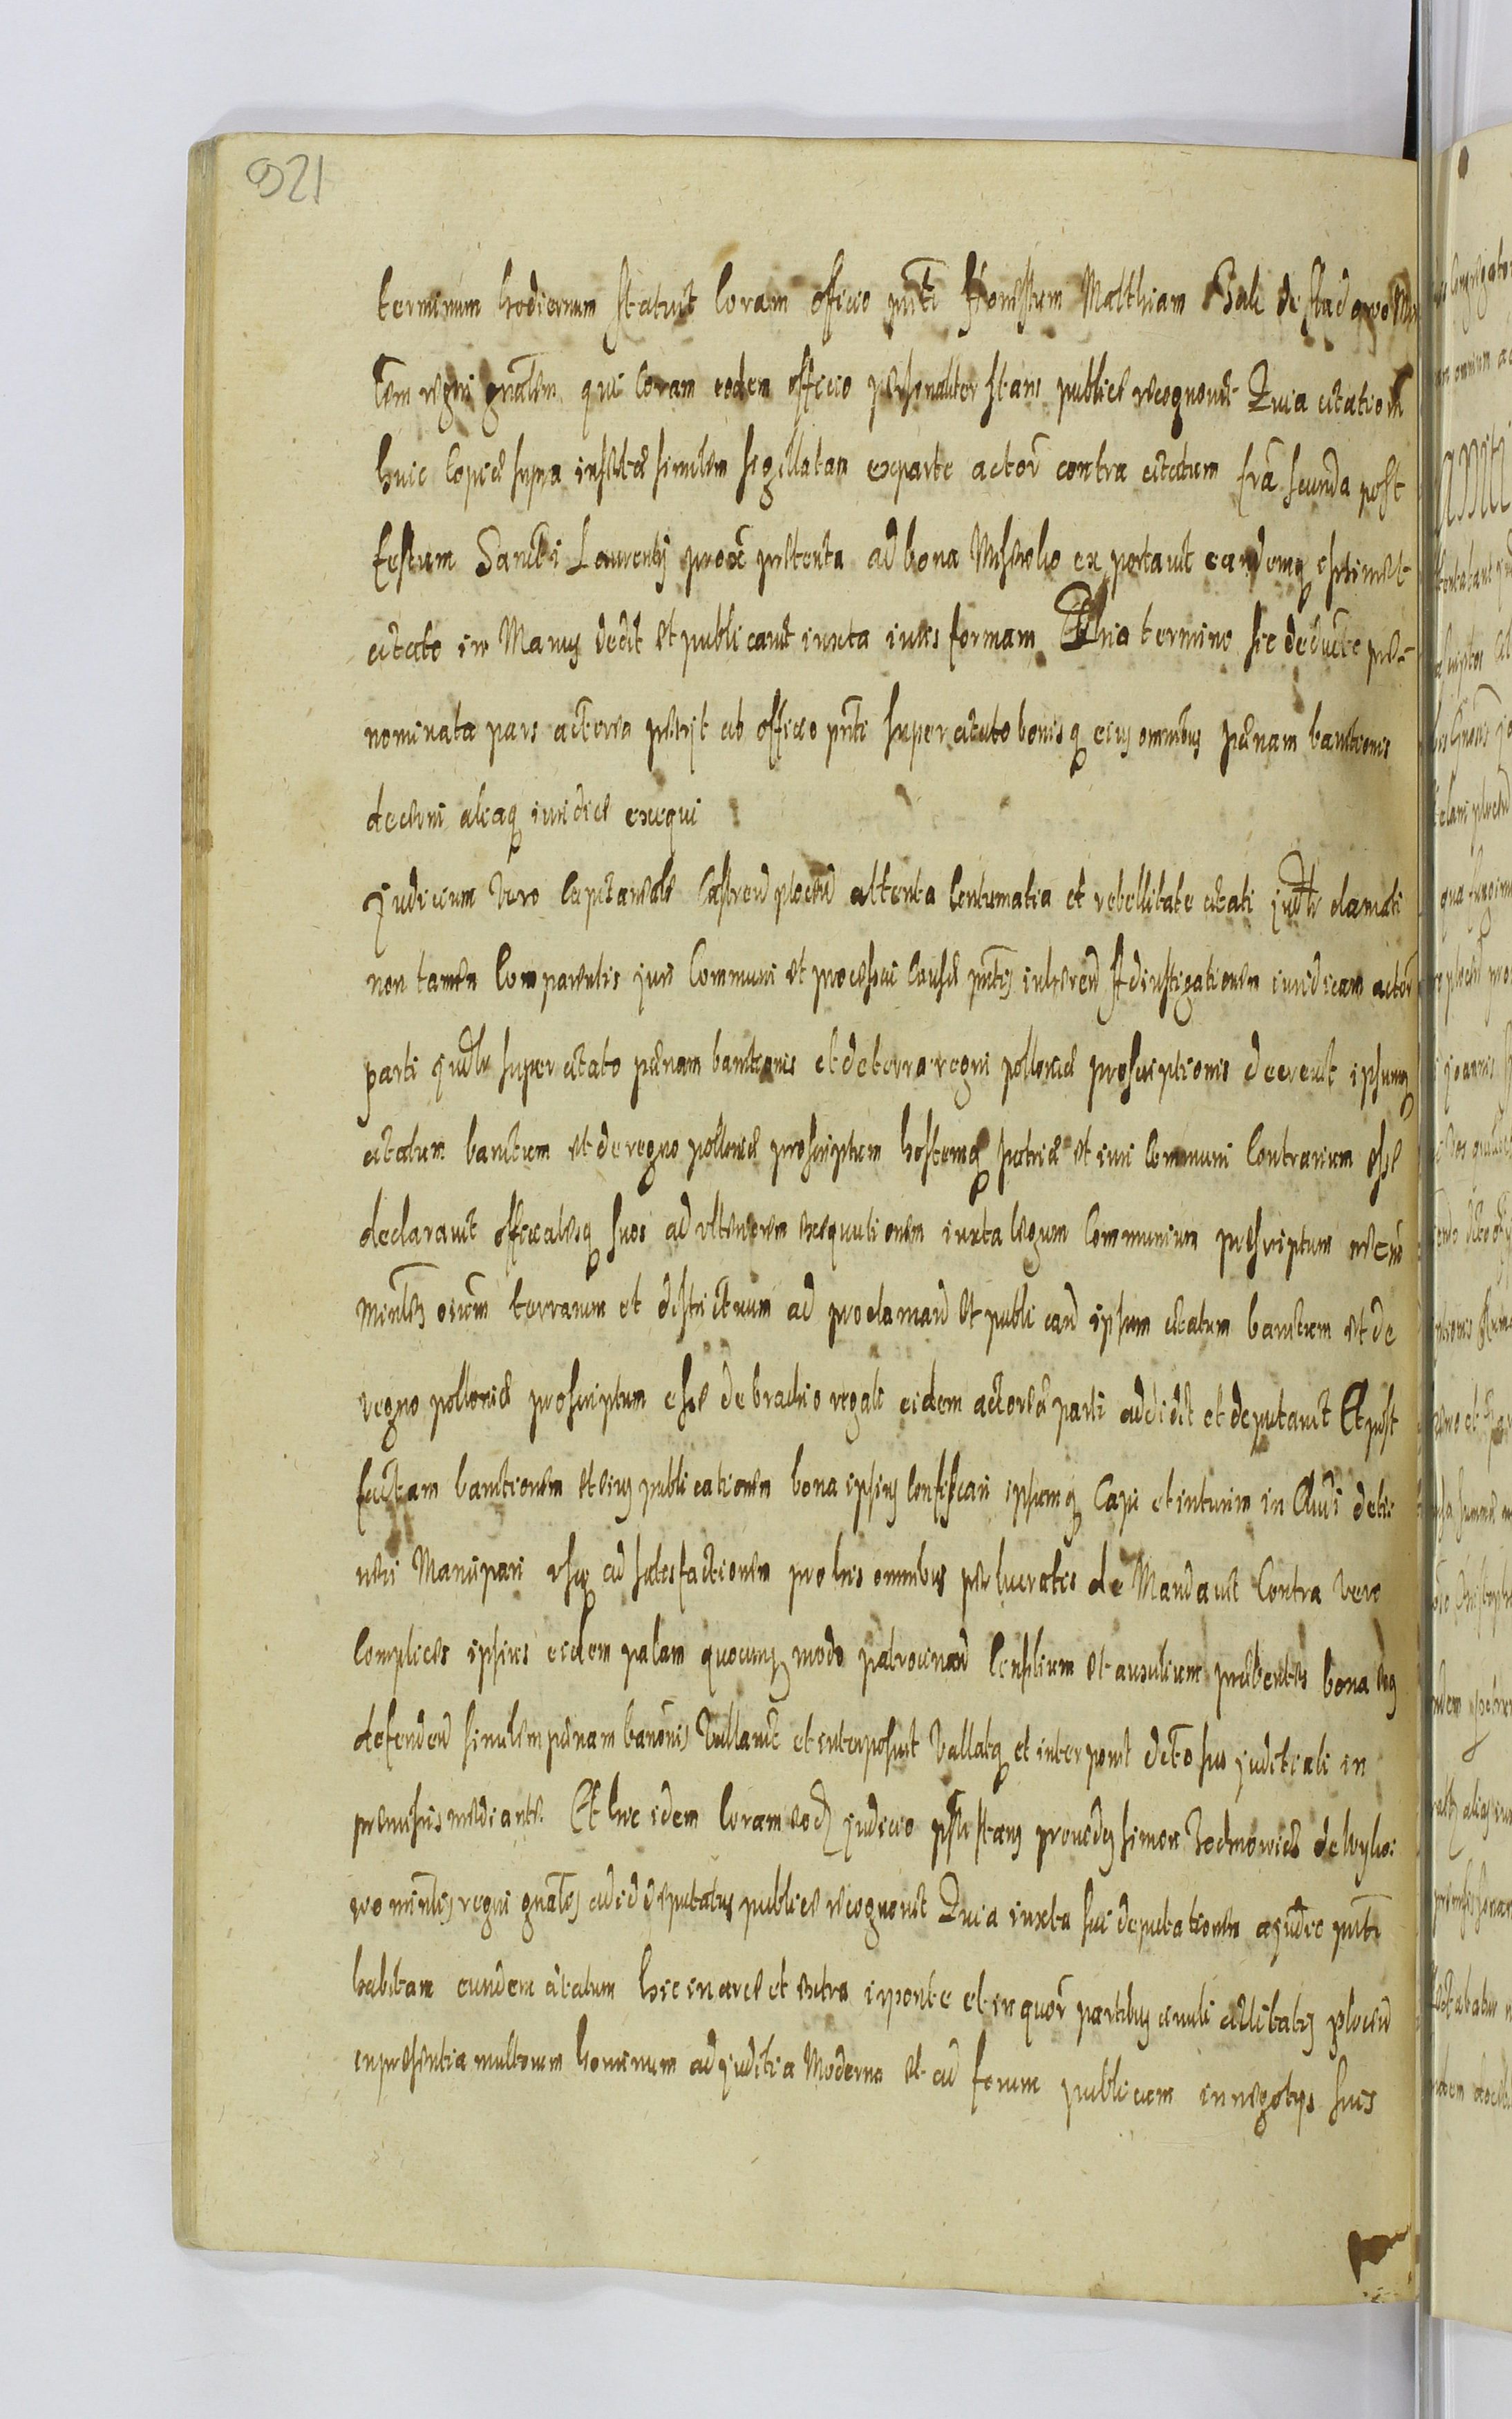 921
terminum hodiernum statuit Coram officio pnti Honestum Matthiam Gale de
regni gnalem qui Coram eodem officio personaliter stans publice recognouit Quia citationem
huic Copiæ supra insertæ similem sigillatam exparte actor contra citatum fra secunda post
festum Sancti Laurentij prox præterita ad bona exportauit eandemq
citato in Manus dedit et publicauit iuxta iuris formam termino sic deducto præ-
nominata pars actorea petijt ab officio pnti super citato bonisq eius omnibus pænam banitionis
decerni aliaq iuridice exequi
Judicium Vero Capitaneale Castren plocen attenta Contumatia et rebellitate citati judtr clamati
non tamen Comparentis juri Communi et processui Causæ pntis inhæren Ad instigationem iuridicam actor
parti judtr super citato pænam banitionis et de terra regni polloniæ proscriptionis decreuit ipsumq
citatum banitum et de regno polloniæ proscriptum hostemq patriæ et iuri Communi Contrarium esse
declarauit officialesq suos ad vlteriorem exequutionem iuxta legum Communium præscriptum necnon
Minles oium terrarum et districtuum ad proclaman et publican ipsum citatum banitum et de
regno polloniæ proscriptum esse de brachio regali eidem actoreæ parti addidit et deputauit Et post
factam banitionem et eius publicationem bona ipsius Confiscari ipsumq Capi et interim in deti-
neri Mancipari vsq ad satisfactionem pro his omnibus per lucratis de Mandauit Contra vero
Complices ipsius eidem palam quocunq modo patrocinan Consilium et auxilium præbentes bona eius
defenden similem pænam banonis Vallauit et interposuit Vallatq et interponit deto suo juditiali in
præmissis mediante. Et hic idem Coram eod judicio pstr stans prouidus simon de
minlis regni gnalis ad id deputatus publice recognouit Quia iuxta sui deputationem a judic pnti
habitam eundem citatum hic in arce et extra in ponte et in quor partibus ciuitatis plocen
in præsentia multorum hominum ad juditia Moderna et ad forum publicum in negotijs suis